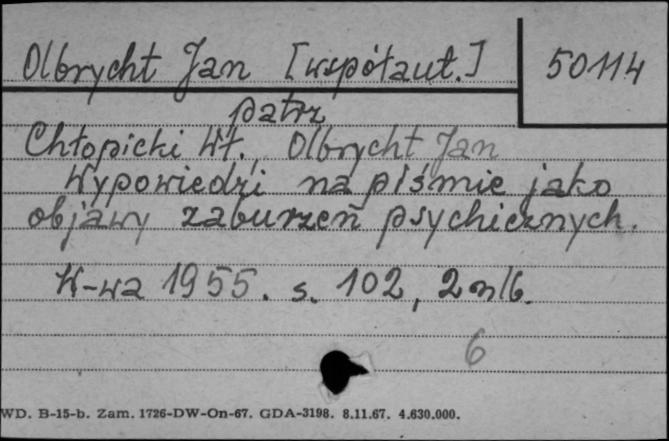 Olbrycht Jan [współaut.] 50114
patrz
Chłopicki Wł., Olbrycht Jan
Wypowiedzi na piśmie jako
objawy zaburzeń psychicznych.
W-wa 1955. s. 102, 2 nlb.
6
WD. B-15-b. Zam. 1726-DW-On-67. GDA-3198. 8.11.67. 4.630.000.